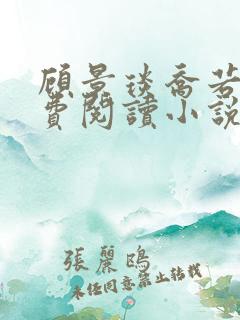 顾景琰乔若
費閱讀小説
張麗鴎
未经同意禁止转载